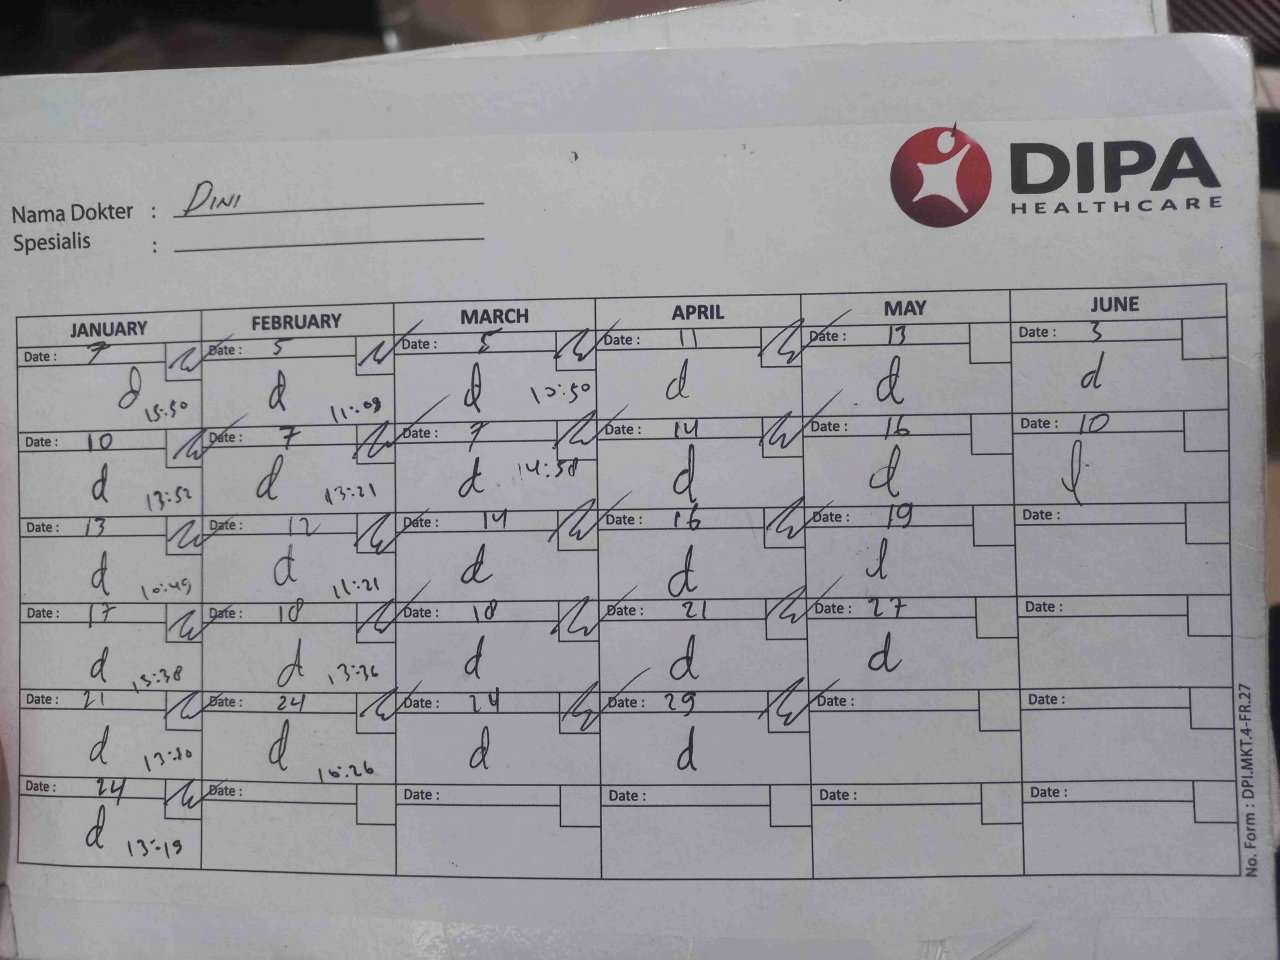 DIPA
HEALTHCARE
Nama Dokter : DINI
Spesialis :
JANUARY FEBRUARY MARCH APRIL MAY JUNE
Date : 7 Date : 5 Date : 5 Date : 11 Date : 13 Date : 3
d 15:50 d 11:09 d 10:50 d d d
Date : 10 Date : 7 Date : 7 Date : 14 Date : 16 Date : 10
d 13:52 d 13:21 d 14:58 d d
Date : 13 Date : 12 Date : 14 Date : 16 Date : 19 Date :
d 10:49 d 11:21 d d
Date : 17 Date : 18 Date : 18 Date : 21 Date : 27 Date :
d 13:38 d 13:36 d d d
Date : 21 Date : 24 Date : 24 Date : 29 Date : Date :
d d 16:26 d d
Date : 24 Date : Date : Date : Date : Date :
d 13:19
No. Form : DPI.MKT.4-FR.27